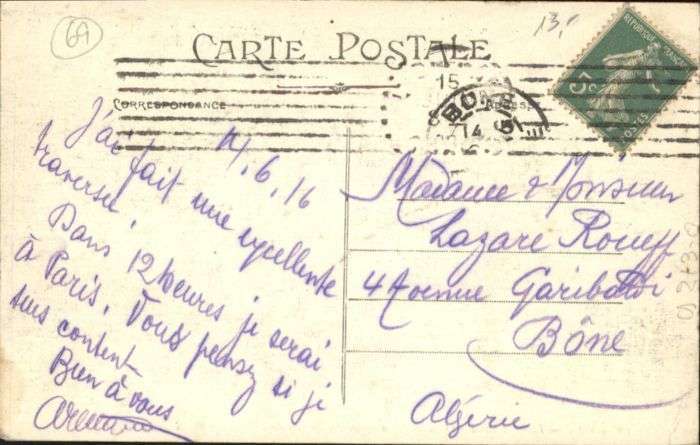 69
13,"
CARTE POSTALE
CORRESPONDANCE
REPUBLIQUE FRANÇAISE
5c
POSTES
15
BO
14
14.6.16
J'ai fait une excellente
traversée.
Dans 12 heures je serai
à Paris. Vous pensez si je
suis content
Bien à vous
Madame & Monsieur
Lazare Roueff
4 Avenue Garibaldi
Bône
Algérie